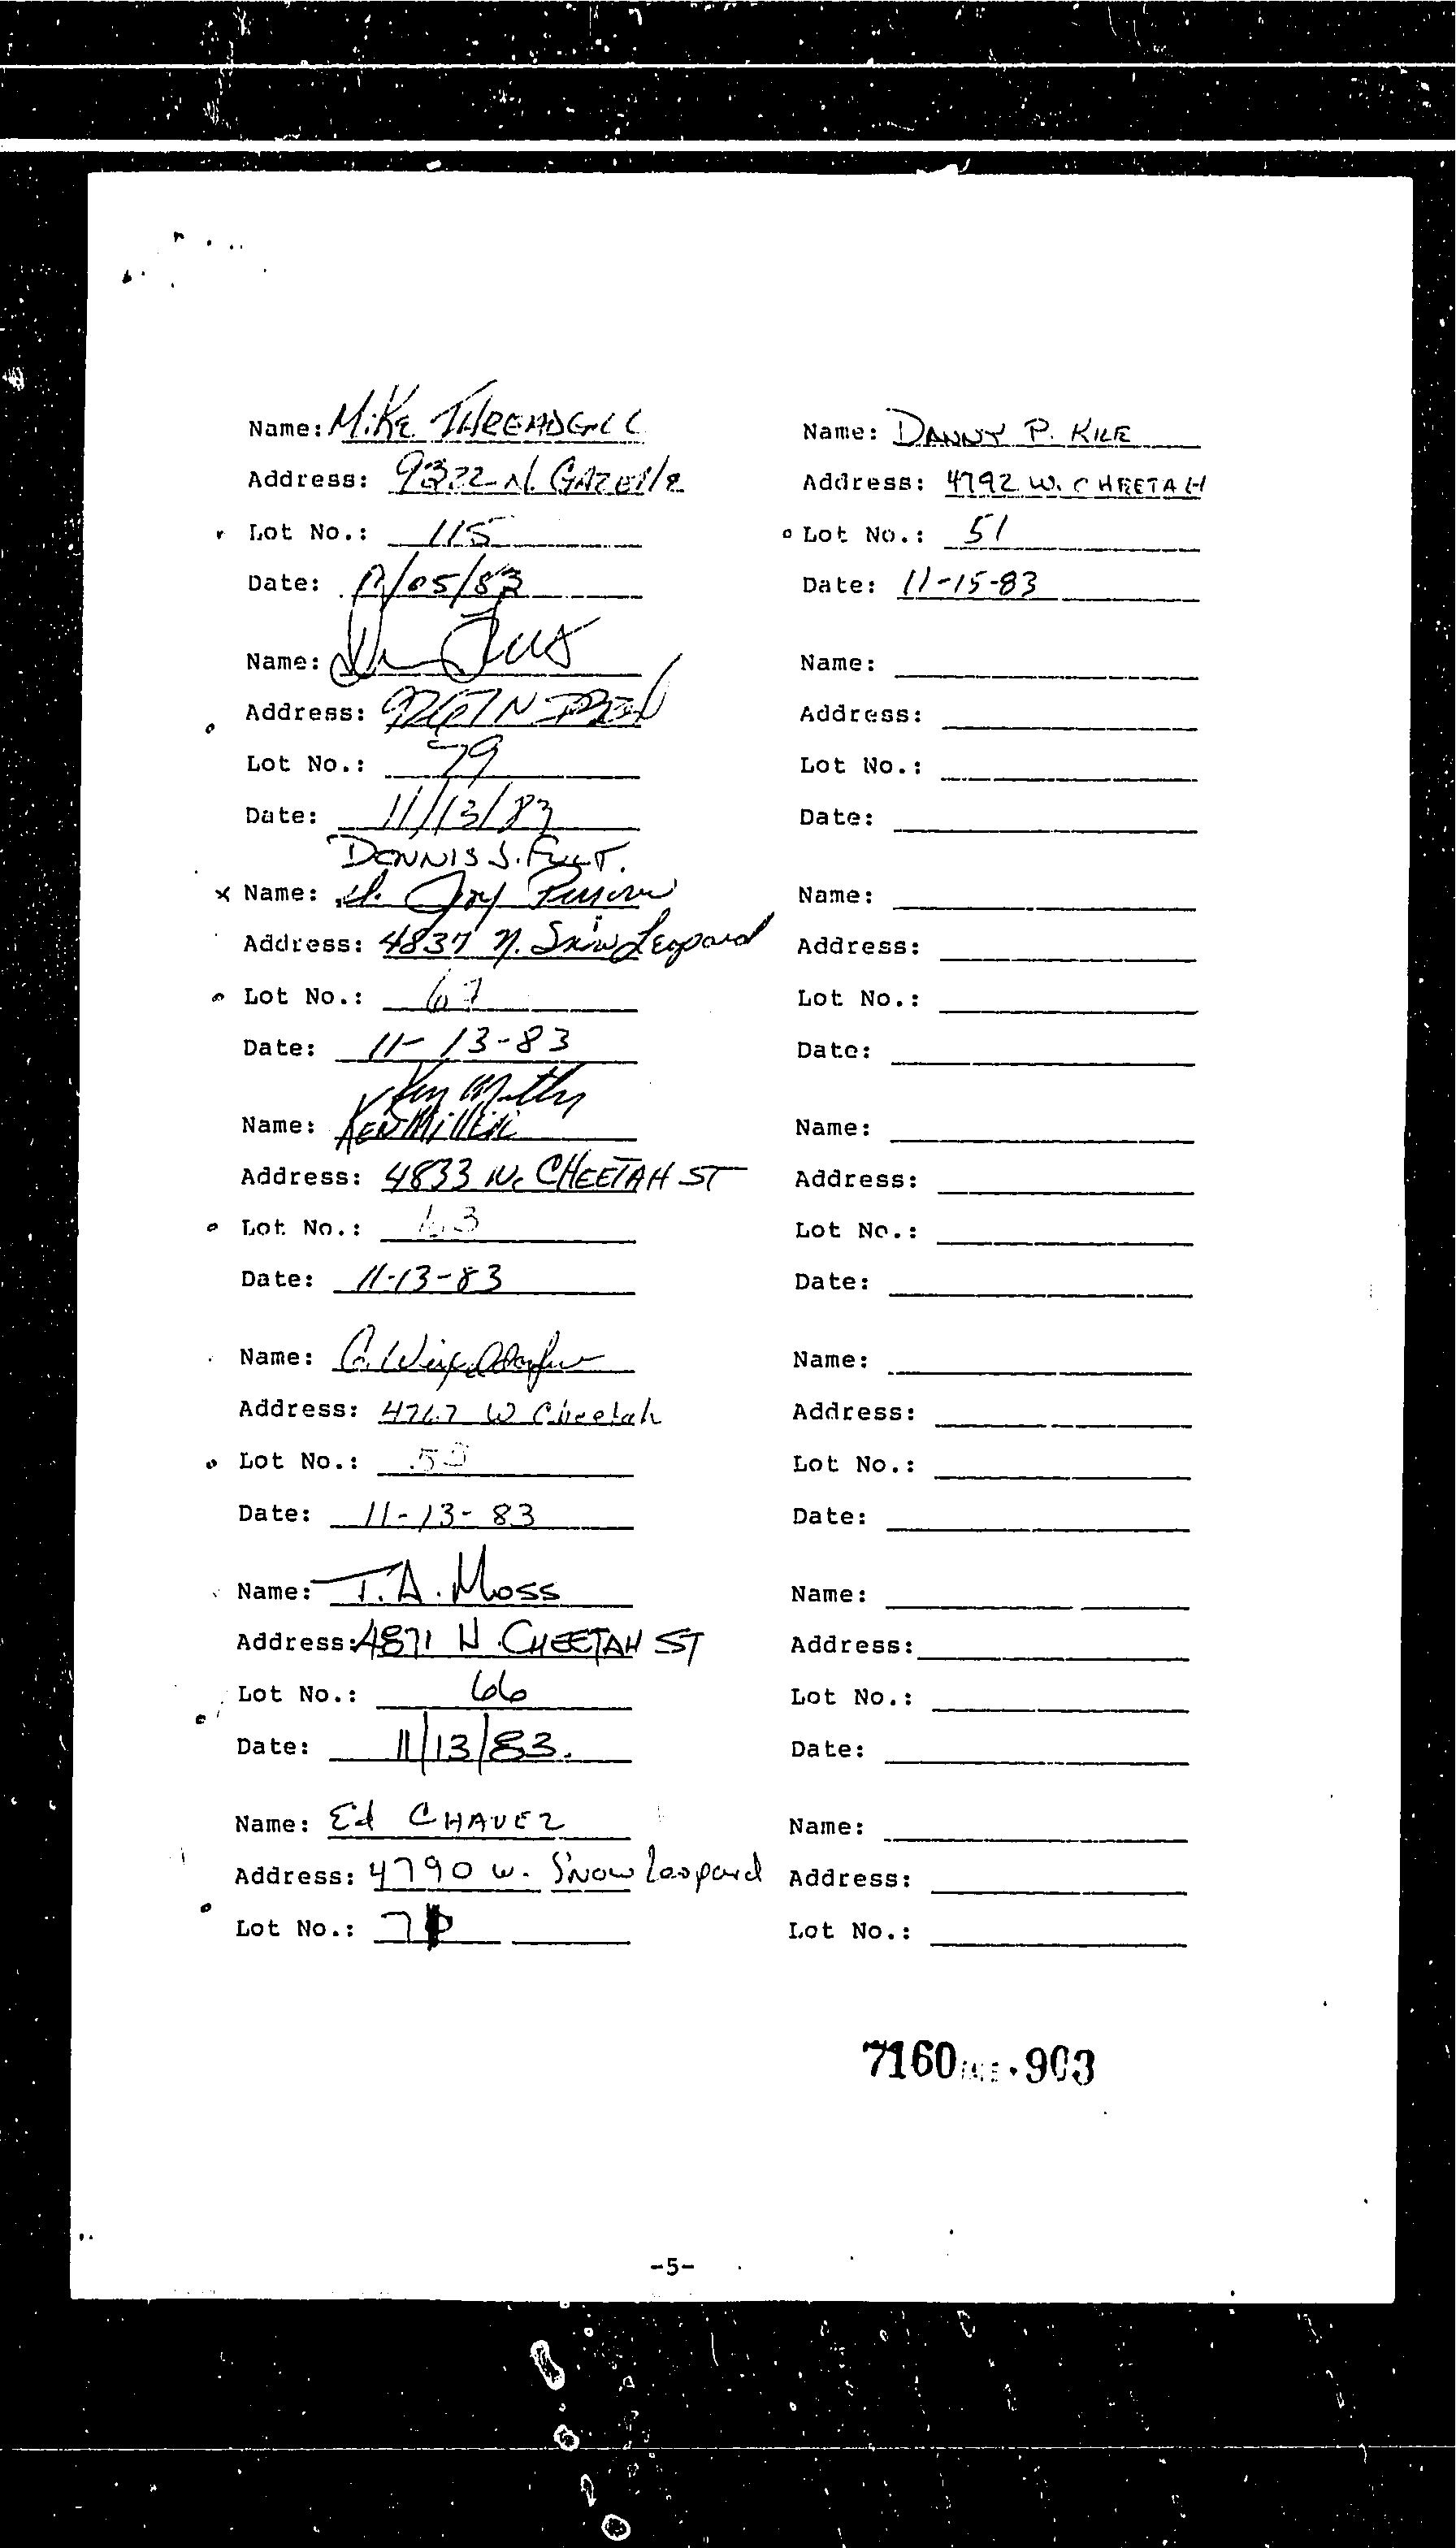 Name: Mike THREADGILL
Address: 9322 N. GAZElle
Lot No.: 115
Date: /05/83
Name:
Address: 9267 N
Lot No.: 79
Date: 11/13/83
DENNIS J.
Name: Joy
Address: 4837 N. Snow Leopard
Lot No.: 67
Date: 11-13-83
Name: KEN MILLER
Address: 4833 W. CHEETAH ST
Lot No.: 63
Date: 11-13-83
Name:
Address: 4767 W Cheetah
Lot No.:
Date: 11-13-83
Name: T.A. Moss
Address: 4871 N. CHEETAH ST
Lot No.: 66
Date: 11/13/83.
Name: Ed CHAVEZ
Address: 4790 W. Snow Leopard
Lot No.: 
Name: DANNY P. KILE
Address: 4792 W. CHEETAH
Lot No.: 51
Date: 11-15-83
Name:
Address:
Lot No.:
Date:
Name:
Address:
Lot No.:
Date:
Name:
Address:
Lot No.:
Date:
Name:
Address:
Lot No.:
Date:
Name:
Address:
Lot No.:
Date:
Name:
Address:
Lot No.:
7160 903
-5-